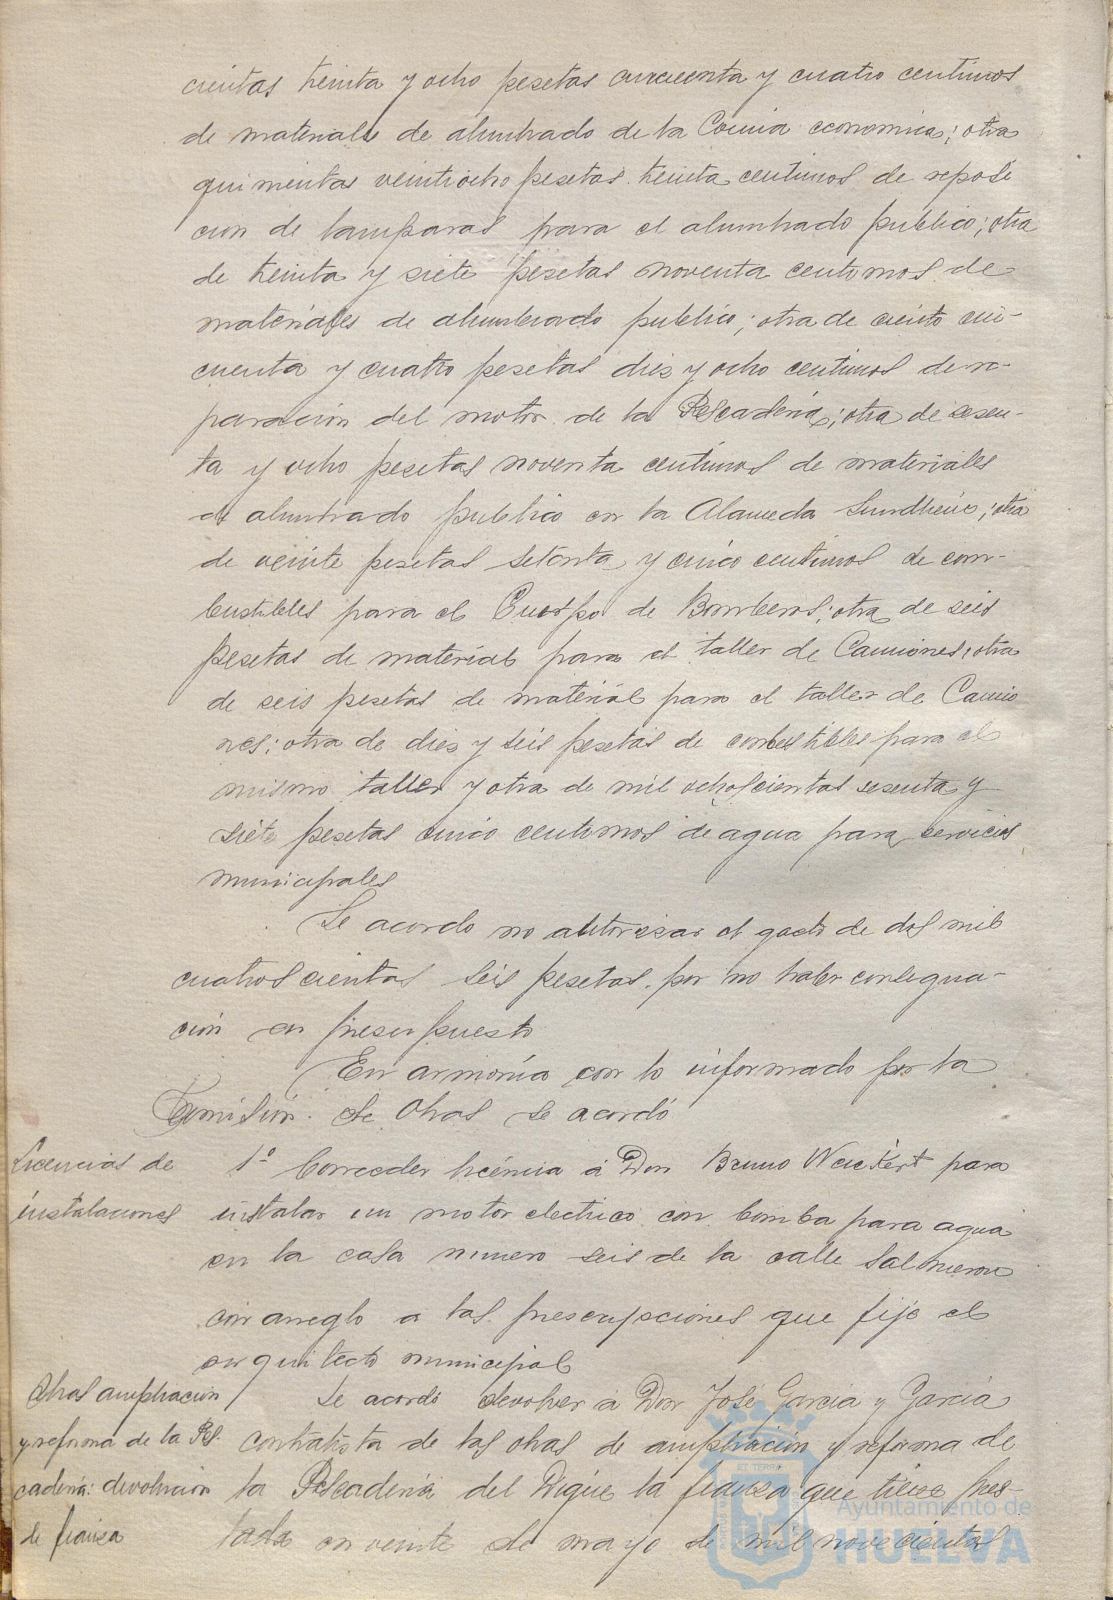 cientas treinta y ocho pesetas cincuenta y cuatro centimos
de materiales de alumbrado de la Cocina economica; otra
quinientas veintiocho pesetas treinta centimos de reposi
cion de lamparas para el alumbrado publico; otra
de treinta y siete pesetas noventa centimos de
materiales de alumbrado publico; otra de ciento cin-
cuenta y cuatro pesetas diez y ocho centimos de re-
paración del motor de la Pescaderia; otra de sesen-
ta y ocho pesetas noventa centimos de materiales
de alumbrado publico en la Alameda Sundheim; otra
de veinte pesetas setenta y cinco centimos de com-
bustibles para el Cuerpo de Bomberos; otra de seis
pesetas de material para el taller de Camiones; otra
de seis pesetas de material para el taller de Camio
nes; otra de diez y seis pesetas de combustibles para el
mismo taller y otra de mil ochoscientas sesenta y
siete pesetas cinco centimos de agua para servicios
municipales
Se acordo no autorizar el gasto de dos mil
cuatroscientas seis pesetas por no haber consigna-
ción en presupuesto
En armonía con lo informado por la
Comisión de Obras se acordó
Licencias de
instalaciones
1º Conceder licencia á Don Bruno para
instalar un motor electrico con bomba para agua
en la casa numero seis de la calle Salmeron
con arreglo a las prescripciones que fije el
arquitecto municipal
Obras ampliacion
y reforma de la Pes
caderia: devolucion
de fianza
Se acordó devolver á Don José Garcia y Garcia
contratista de las obras de ampliación y reforma de
la Pescaderia del Dique la fianza que tiene pres-
tada en veinte de mayo de mil novecientos
Ayuntamiento de
HUELVA